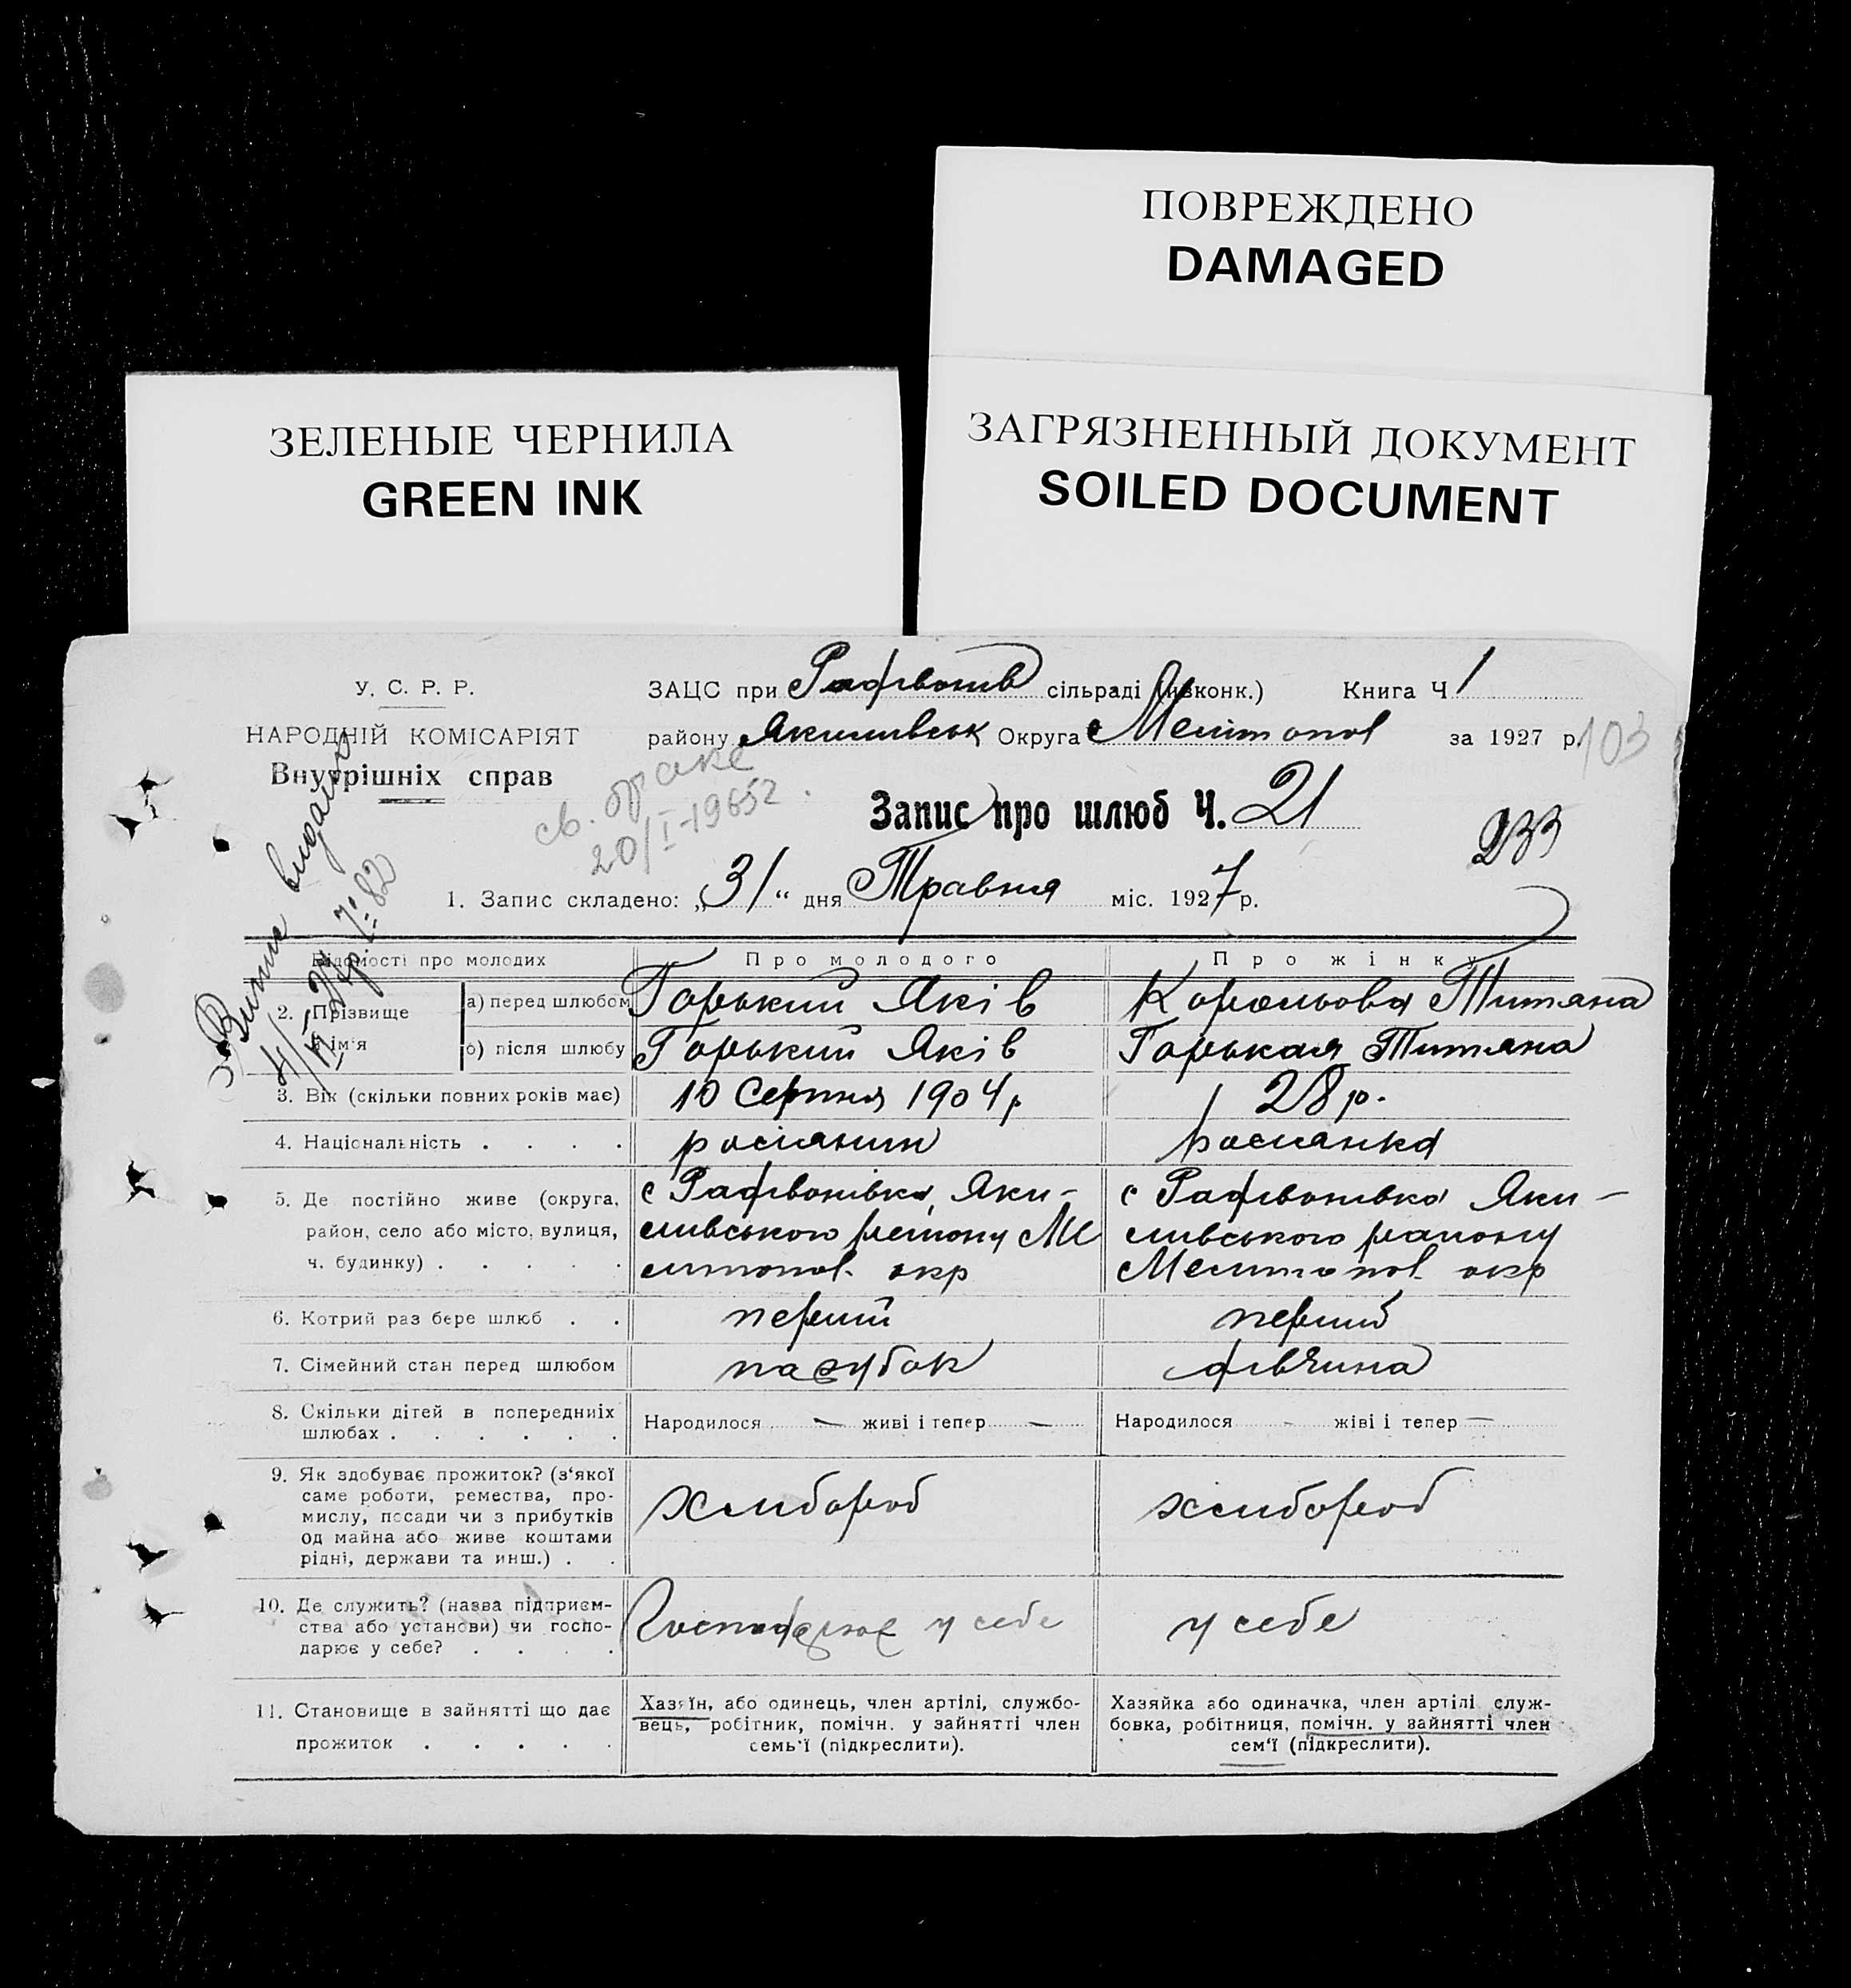 ПОВРЕЖДЕНО
DAMAGED
ЗЕЛЕНЫЕ ЧЕРНИЛА
GREEN INK
ЗАГРЯЗНЕННЫЙ ДОКУМЕНТ
SOILED DOCUMENT
У. С. Р. Р.
НАРОДНІЙ КОМІСАРІЯТ
Внутрішніх справ
ЗАЦС при сільраді Книга Ч 1
району Якимівськ Округа Мелітопол за 1927 р.
103
св. браке
20/I-1965г.
Запис про шлюб Ч. 21
233
1. Запис складено: „31“ дня Травня міс. 1927 р.
видано
Відомості про молодих Про молодого Про жінку
2. Прізвище й ім'я а) перед шлюбом Горький Яків Корольова Титяна
б) після шлюбу Горький Яків Горькая Титяна
3. Вік (скільки повних років має) 10 Серпня 1904 р 28 р.
4. Національність . . . . росіянин росіянка
5. Де постійно живе (округа, район, село або місто, вулиця, ч. будинку) . . . . .
с Радівонівка, Яки-
мивського району Ме
литопол. окр
с Радівонівка Яки-
мивського району
Мелитопол. окр
6. Котрий раз бере шлюб . . перший перший
7. Сімейний стан перед шлюбом парубок дівчина
8. Скільки дітей в попередниіх шлюбах . . . . . . Народилося — живі і тепер — Народилося - жіві і тепер —
9. Як здобуває прожиток? (з'якої
саме роботи, ремества, про-
мислу, посади чи з прибутків
од майна або живе коштами
рідні, держави та инш.) . .
хлибороб хлибороб
10. Де служить? (назва підприєм-
ства або установи) чи госпо-
дарює у себе? . . . .
Господарює у себе у себе
11. Становище в зайнятті що дає
прожиток . . . . .
Хазяїн, або одинець, член артілі, службо-
вець, робітник, помічн. у зайнятті член
семь'ї (підкреслити).
Хазяйка або одиначка, член артілі служ-
бовка, робітниця, помічн. у зайнятті член
сем'ї (підкреслити).